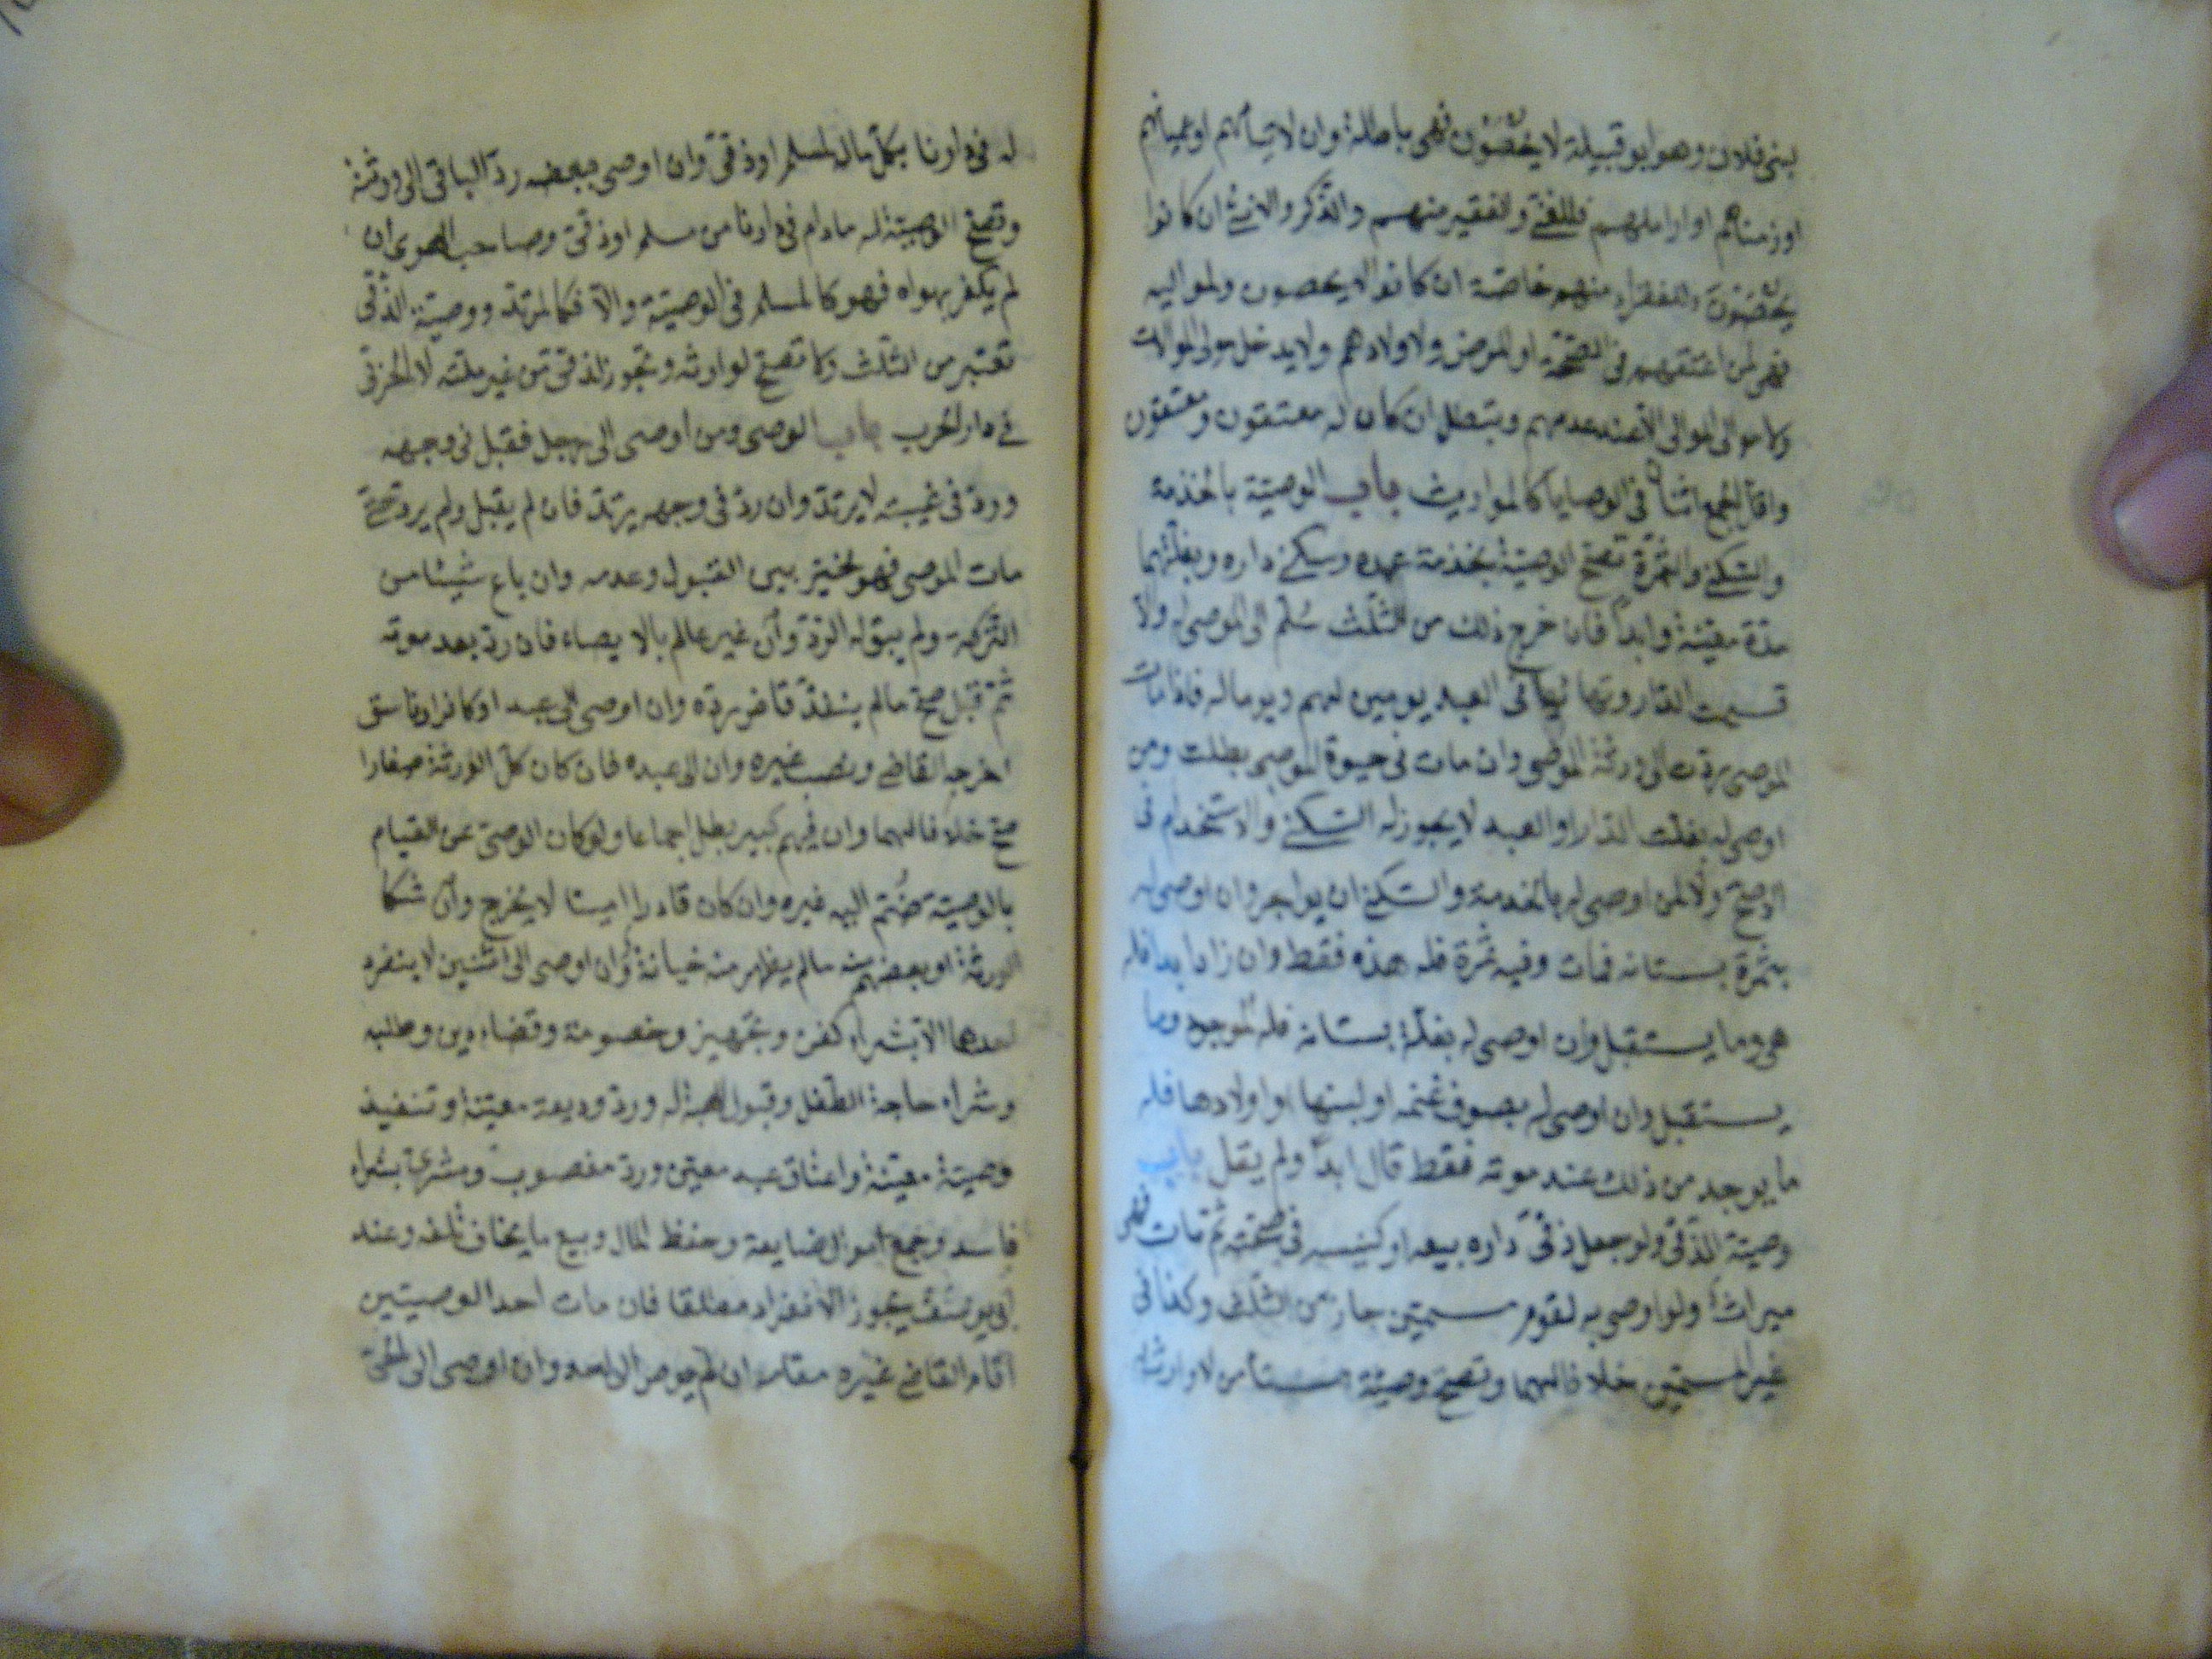 لبنى فلان وهو ابو قبيلة لا يحصون فهى باطلة وان لايتامهم او عميانهم
او زمناهم او اراملهم فللغنى والفقير منهم والذكر والانثى ان كانوا
يحصون وللفقراء منهم خاصة ان كانوا لا يحصون ولمواليه
فهى لمن اعتقهم فى الصحة او المرض ولاولادهم ولا يدخل مولى الموالات
ولا موالى الموالى الا عند عدمهم وتبطل ان كان له معتقون ومعتقون
واقل الجمع اثنان فى الوصايا كالمواريث باب الوصية بالخدمة
والسكنى والثمرة تصح الوصية بخدمة عبده وسكنى داره وبغلتهما
مدة معينة وابدا فان خرج ذلك من الثلث سلم الى الموصى له والا
قسمت الدار وتهايئا فى العبد يومين لهم ويوما له فاذا مات
الموصى له ردت الى ورثة الموصى وان مات فى حيوة الموصى بطلت ومن
اوصى له بغلة الدار او العبد لا يجوز له السكنى والاستخدام فى
الاصح ولا لمن اوصى له بالخدمة والسكنى ان يواجر وان اوصى له
بثمرة بستانه فمات وفيه ثمرة فله هذه فقط وان زاد ابدا فله
هى وما يستقبل وان اوصى له بغلة بستانه فله الموجود وما
يستقبل وان اوصى له بصوف غنمه او لبنها او اولادها فله
ما يوجد من ذلك عند موته فقط قال ابدا ولم يقل باب
وصية الذمى ولو جعل ذمى داره بيعه او كنيسه فى صحته ثم مات فهى
ميراث ولو اوصى به لقوم مسمين جاز من الثلث وكذا فى
غير المسمين خلافا لهما وتصح وصية مستأمن لا وارث
له فى دارنا بكل ماله لمسلم او ذمى وان اوصى ببعضه رد الباقى الى ورثته
وتصح الوصية له مادام فى دارنا من مسلم او ذمى وصاحب الهوى ان
لم يكفر بهواه فهو كالمسلم فى الوصية والا فكالمرتد ووصية الذمى
تعتبر من الثلث ولا تصح لوارثه وتجوز لذمى من غير ملته لا لحربى
فى دار الحرب باب الوصى ومن اوصى الى رجل فقبل فى وجهه
ورد فى غيبته لا يرتد وان رد فى وجهه يرتد فان لم يقبل ولم يرد حتى
مات الموصى فهو مخير بين القبول وعدمه وان باع شيئا من
التركة ولم يبق له الرد وان غير عالم بالايصاء فان رد بعد موته
ثم قبل صح ما لم ينفذ قاض رده وان اوصى الى عبد او كافر او فاسق
اخرجه القاضى ونصب غيره وان الى عبده فان كان كل الورثة صغارا
صح خلافا لهما وان فيهم كبير بطل اجماعا ولو كان الوصى عن القيام
بالوصية ضم اليه غيره وان كان قادرا امينا لا يخرج وان شكا
الورثة او بعضهم منه ما لم يظهر منه خيانة وان اوصى الى اثنين لا ينفرد
احدهما الا بشراء كفن وتجهيز وخصومة وقضاء دين وطلبه
وشراء حاجة الطفل وقبول الهبة له ورد وديعة معينة وتنفيذ
وصية معينة واعتاق عبد معين ورد مغصوب ومشرى بشراء
فاسد وجمع اموال ضايعة وحفظ المال وبيع ما يخاف تلفه وعند
ابى يوسف يجوز الانفراد مطلقا فان مات احد الوصيين
اقام القاضى غيره مقامه ان لم يوص الى احد وان اوصى الى الحى